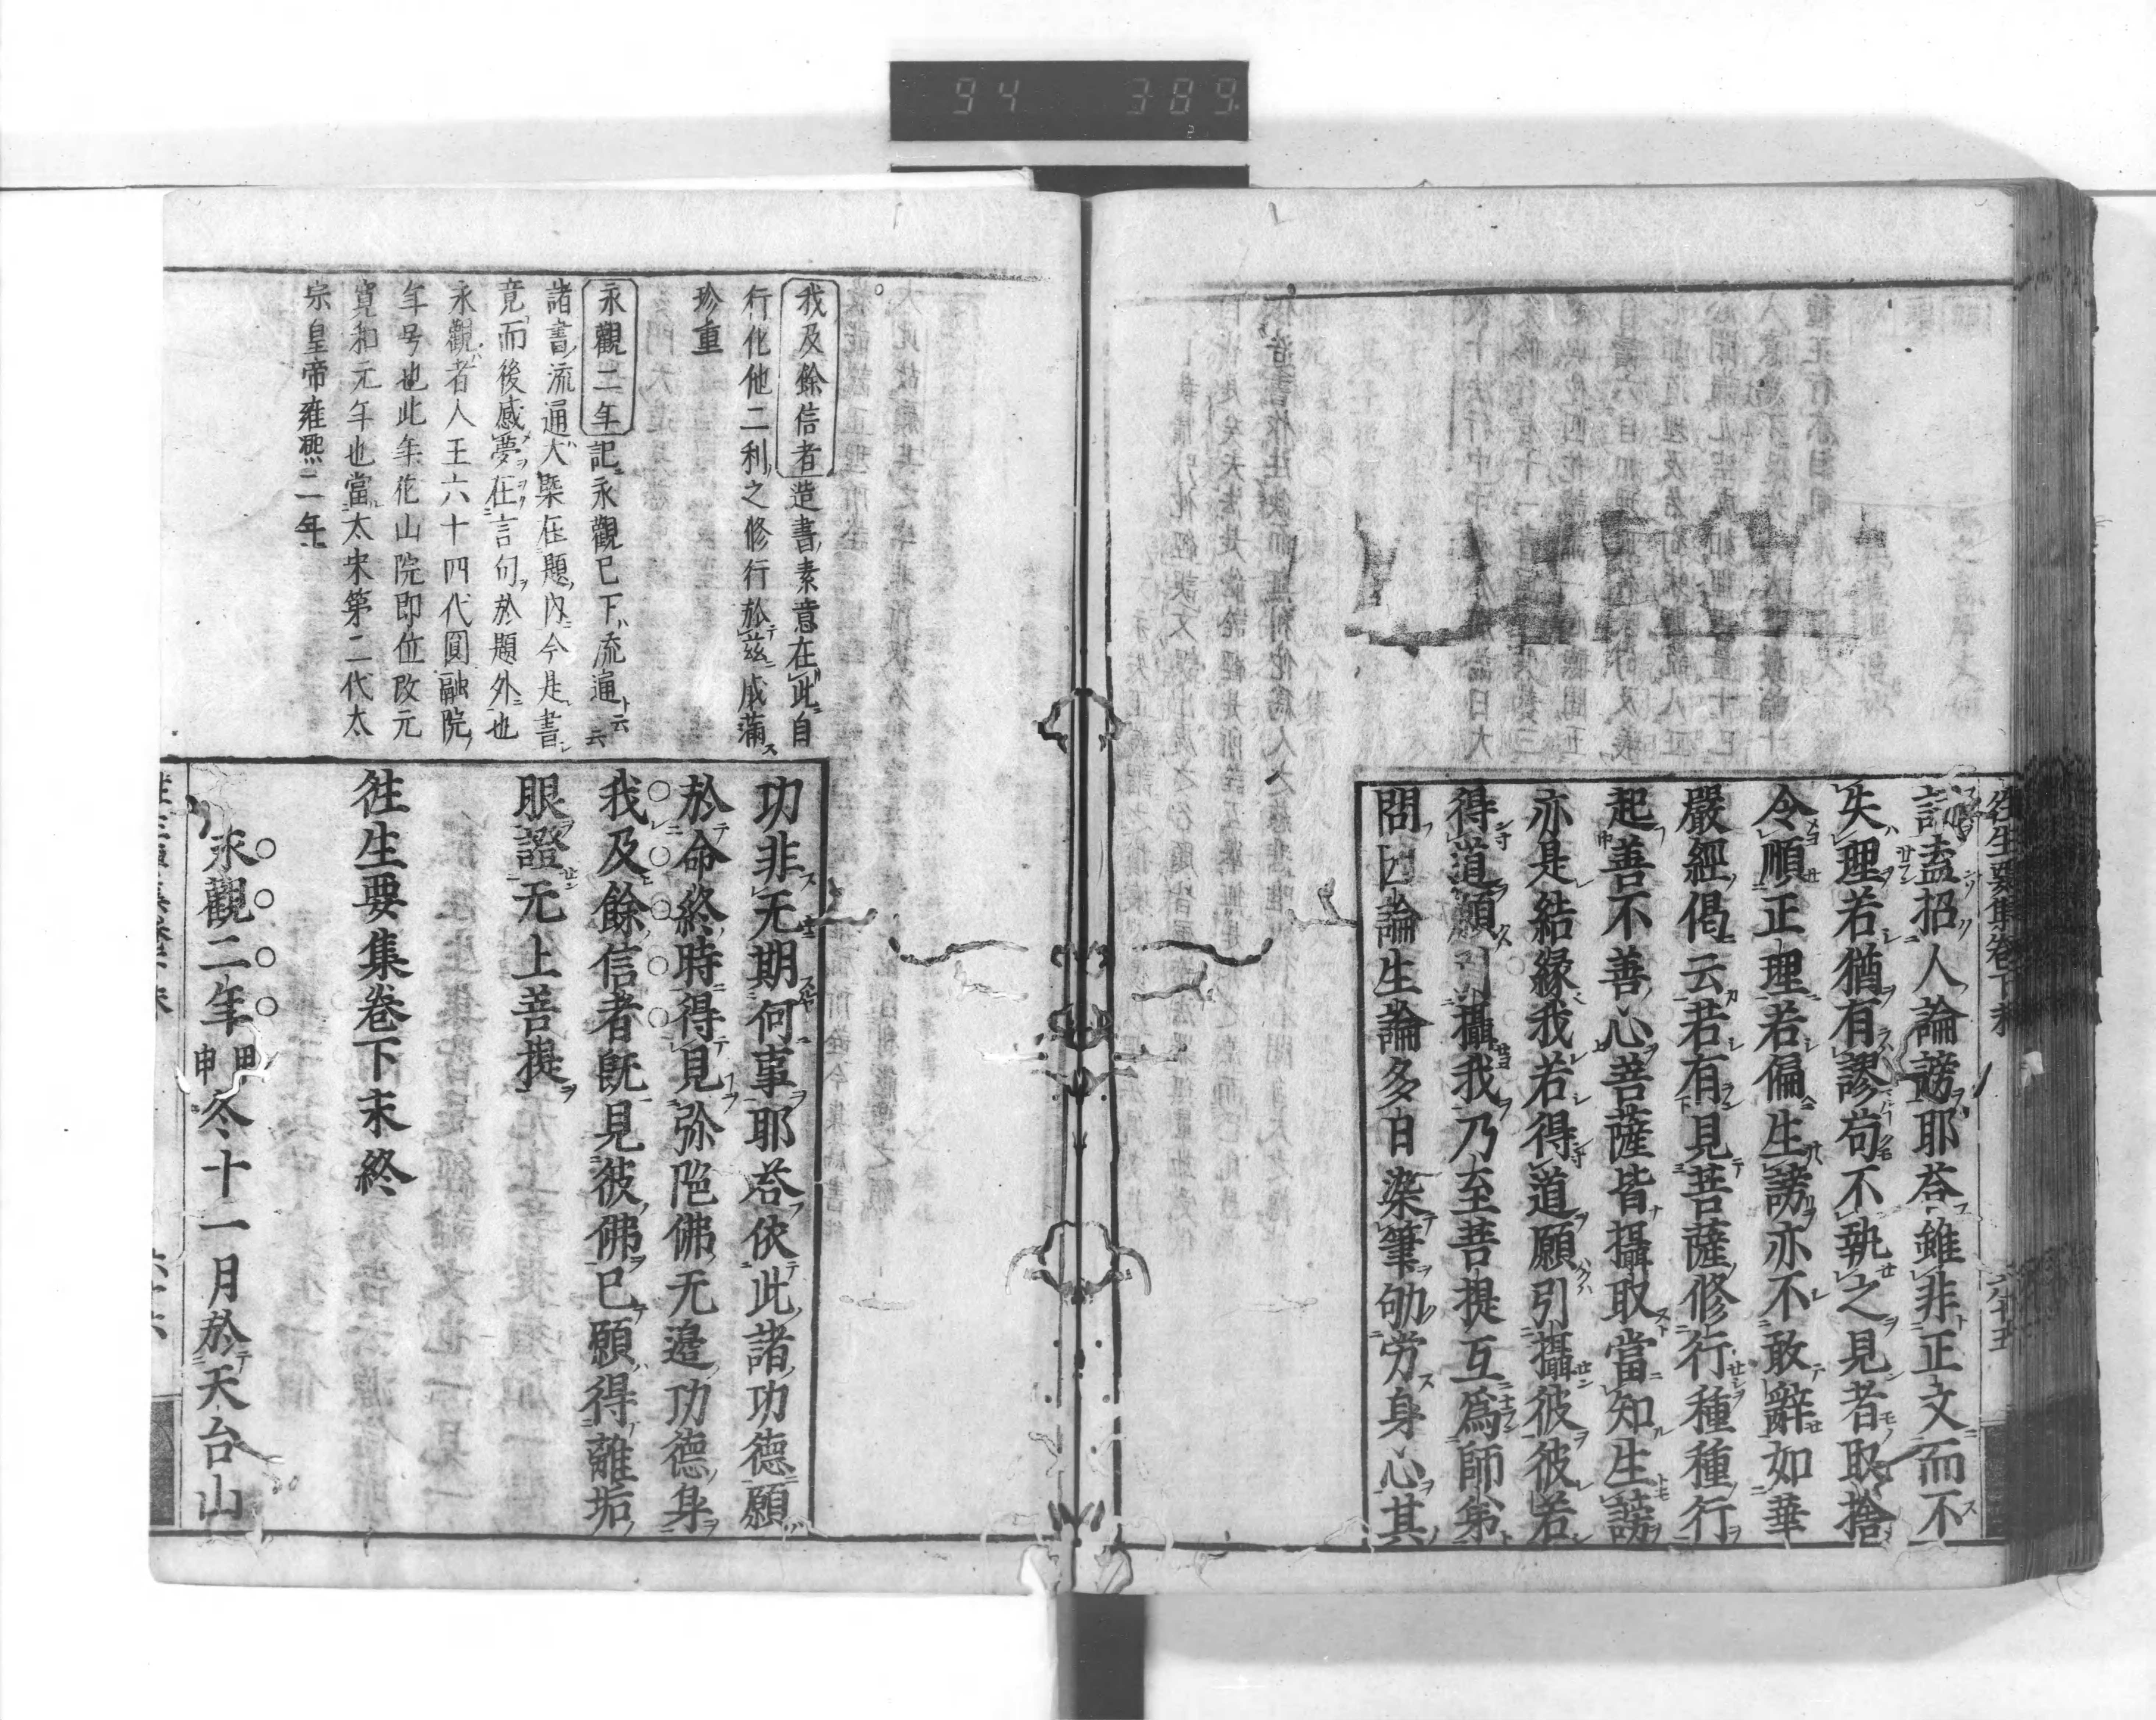 94 389
2
往生要集卷下末
六十五
記盍招人論謗耶荅雖非正文而不
失理若猶有謬苟不執之見者取捨
令順正理若偏生謗亦不敢辭如華
嚴經偈云若有見菩薩修行種種行
起善不善心菩薩皆攝取當知生謗
亦是結緣我若得道願引攝彼彼若
得道願引攝我乃至菩提互爲師弟
問因論生論多日染筆劬勞身心其
我及餘信者造書素意在此自
行化他二利之修行於茲成滿
珍重
永觀二年記永觀已下流通云云
諸書流通大槩在題內今是書
竟而後感夢在言句於題外也
永觀者人王六十四代圓融院
年号也此年花山院即位改元
寬和元年也當太宋第二代太
宗皇帝雍熙二年
功非无期何事耶荅依此諸功德願
於命終時得見弥陁佛无邊功德身
我及餘信者既見彼佛已願得離垢
眼證无上菩提
往生要集卷下末終
永觀二年甲申冬十一月於天台山